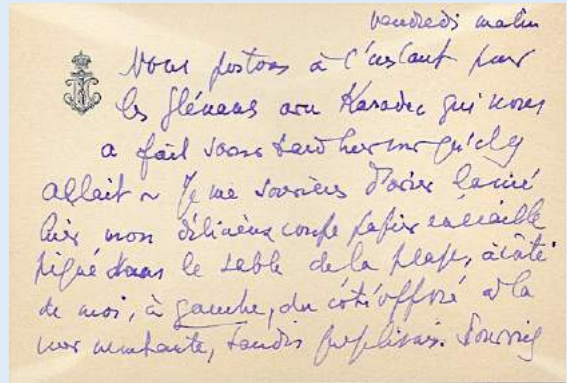 vendredi matin
Nous partons à l'instant pour
les Glénans avec Karadec qui nous
a fait savoir tard hier soir qu'il y
allait ~ Je me souviens d'avoir laissé
hier mon délicieux coupe papier en écaille
piqué dans le sable de la plage, à côté
de moi, à gauche, du côté opposé à la
mer montante, tandis que je lisais.